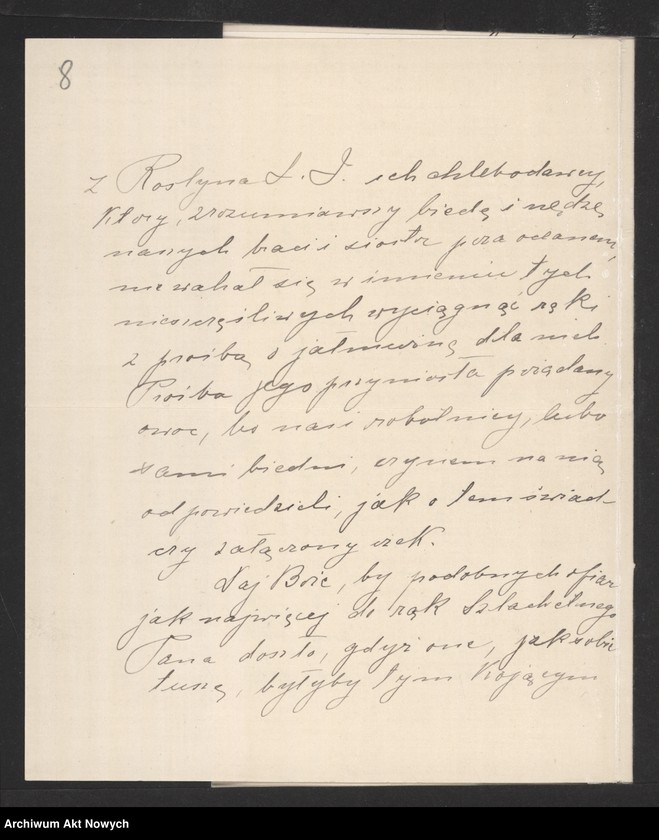 8
z Roslyna L. I. ich chlebodawcy,
który, zrozumiawszy biedę i nędzę
naszych braci i siostr poza oceanem,
nie wahał się w imieniu tych
nieszczęśliwych wyciągnąć ręki
z prośbą o jałmużnę dla nich.
Prośba jego przyniosła pożądany
owoc, bo nasi robotnicy, lubo
sami biedni, czynem na nią
odpowiedzieli, jak o tem świad-
czy załączony czek.
Daj Boże, by podobnych ofiar
jak najwięcej do rąk Szlachetnego
Pana doszło, gdyż one, jak sobie
tuszę, byłyby tym kojącym
Archiwum Akt Nowych